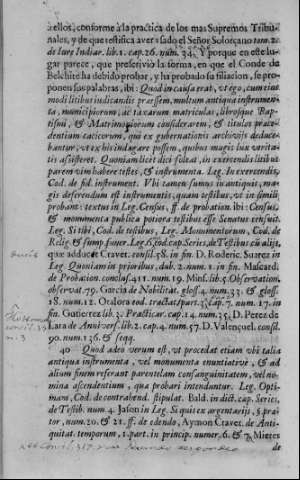 à ellos, conforme à la practica de los mas Supremos Tribu-
nales, y de que testifica aver usado el Señor Solorçano tom. 2.
de Iure Indiar. lib. 1. cap. 26. num. 34. Y porque en este lu-
gar parece, que prescriviò la forma, en que el Conde de
Belchite ha debido probar, y ha probado su filiacion, se pro-
ponen sus palabras, ibi: Quod in causa erat, ut ego, cum eius
modi litibus iudicandis præessem, multum antiqua instrumen-
ta, municipiorum, ac taxarum matriculas, librosque Bap-
tismi, & Matrimoniorum considerarem, & titulos præce-
dentium cacicorum, qui ex gubernationis archivijs deduce-
bantur, ut ex his indagare possem, quibus magis lux varita-
tis assisteret. Quoniam licet dici soleat, in exercendis litibus
parem vim habere testes, & instrumenta. Leg. In exercendis,
Cod. de fid. instrument. Ubi tamen sumus in antiquis, ma-
gis deferendum est instrumentis, quam testibus, ut in simili
probant: textus in Leg. Census, ff. de probation. ibi: Census,
& monumenta publica potiora testibus esse Senatus censuit.
Leg. Si tibi, Cod. de testibus, Leg. Monumentorum, Cod. de
Relig. & sump. funer. Leg. 6. cod. cap. Series, de Testibus cũ alijs,
quæ adducit Cravet. consil. 58. in fin. D. Roderic. Suarez in
Leg. Quoniam in prioribus, dub. 2. num. 1. in fin. Mascard.
de Probation. conclus. 411. num. 19. Mins. lib. 5. Observation.
observat. 79. Garcia de Nobilitat. gloss. 4. num. 33. & gloss.
18. num. 12. Otalora eod. tractat. part. 3. cap. 7. num. 17. in
fin. Gutierrez lib. 3. Practicar. cap. 14. num. 35. D. Perez de
Lara de Anivers. lib. 2. cap. 4. num. 57. D. Valençuel. consil.
90. num. 136. & seqq.
40 Quod adeo verum est, ut procedat etiam ubi talia
antiqua instrumenta, vel monumenta enuntiative, & ad
alium finem referant parentelam consanguinitatem, vel no-
mina ascendentium, qua probari intenduntur. Leg. Opti-
mam, Cod. de contrahend. stipulat. Bald. in dict. cap. Series,
de Testib. num. 4. Jason in Leg. Si quis ex argentarijs, §. præi-
tor, num. 20. & 21. ff. de edendo, Aymon Cravet. de Anti-
quitat. temporum, 1. part. in princip. numer. 6. & 7. Mieres
de